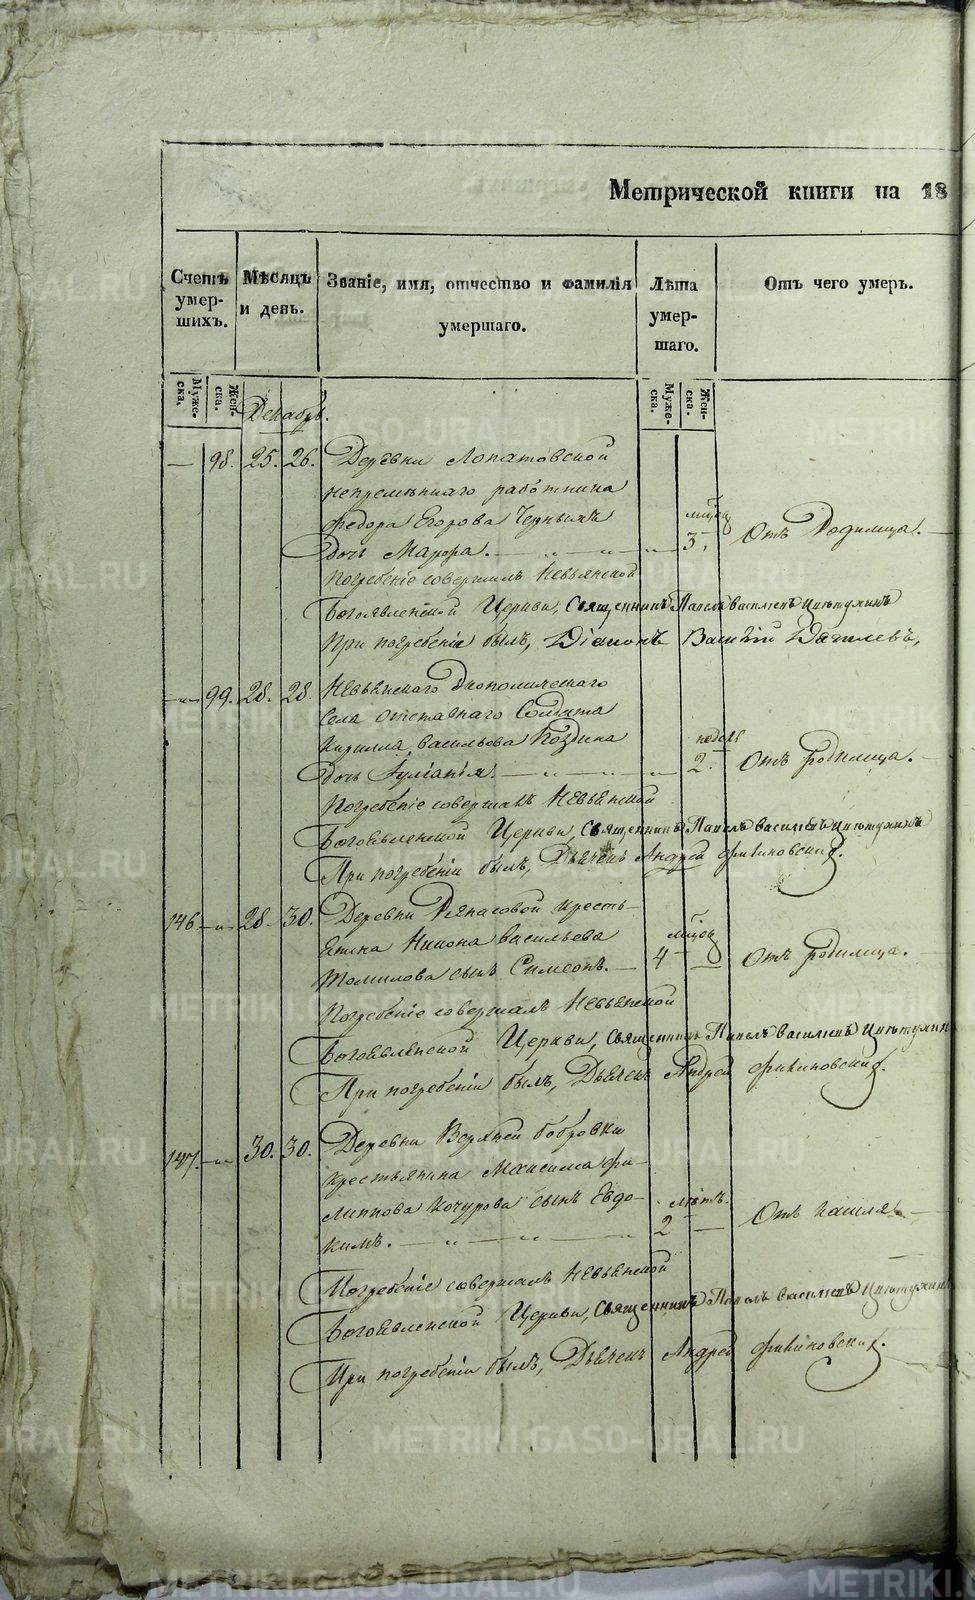 Метрической книги на 18
Счетъ умер-шихъ.
Мѣсяцъ и день.
Званіе, имя, отчество и фамилія умершаго.
Лѣта умер-шаго.
Отъ чего умеръ.
Муже-ска.
Жен-ска.
Муже-ска.
Жен-ска.
Декабрь.
— 98. 25. 26. Деревни Лопатовской
непремѣннаго работника
Федора Егорова Черныхъ
дочь Марфа. 3. Отъ Родимца.
Погребеніе совершалъ Невьянской
Богоявленской Церкви, Священникъ Павелъ Васильевъ
При погребеніи былъ, Діаконъ Василій
99. 28. 28. Невьянского
села отставнаго Солдата
Кирилла Васильева недѣль
дочь Іуліанія. 2. Отъ родимца.
Погребеніе совершалъ Невьянской
Богоявленской Церкви, Священникъ Павелъ Васильевъ
При погребеніи былъ, Дьячекъ Андрей Фикиновский.
146. 28. 30. Деревни кресть-
янина Никона Васильева
Томилова сынъ Симеонъ. — 4 — Отъ родимца.
Погребеніе совершалъ Невьянской
Богоявленской Церкви, Священникъ Павелъ Васильевъ
При погребеніи былъ, Дьячекъ Андрей Фикиновский.
147. 30. 30. Деревни Верхней Бобровки
крестьянина Максима Фи-
липпова Кочурова сынъ Евдо- лѣтъ.
кимъ. 2 — Отъ кашля.
Погребеніе совершалъ Невьянской
Богоявленской Церкви, Священникъ Павелъ Васильевъ
При погребеніи былъ, Дьячекъ Андрей Фикиновский.
METRIKI.GASO-URAL.RU